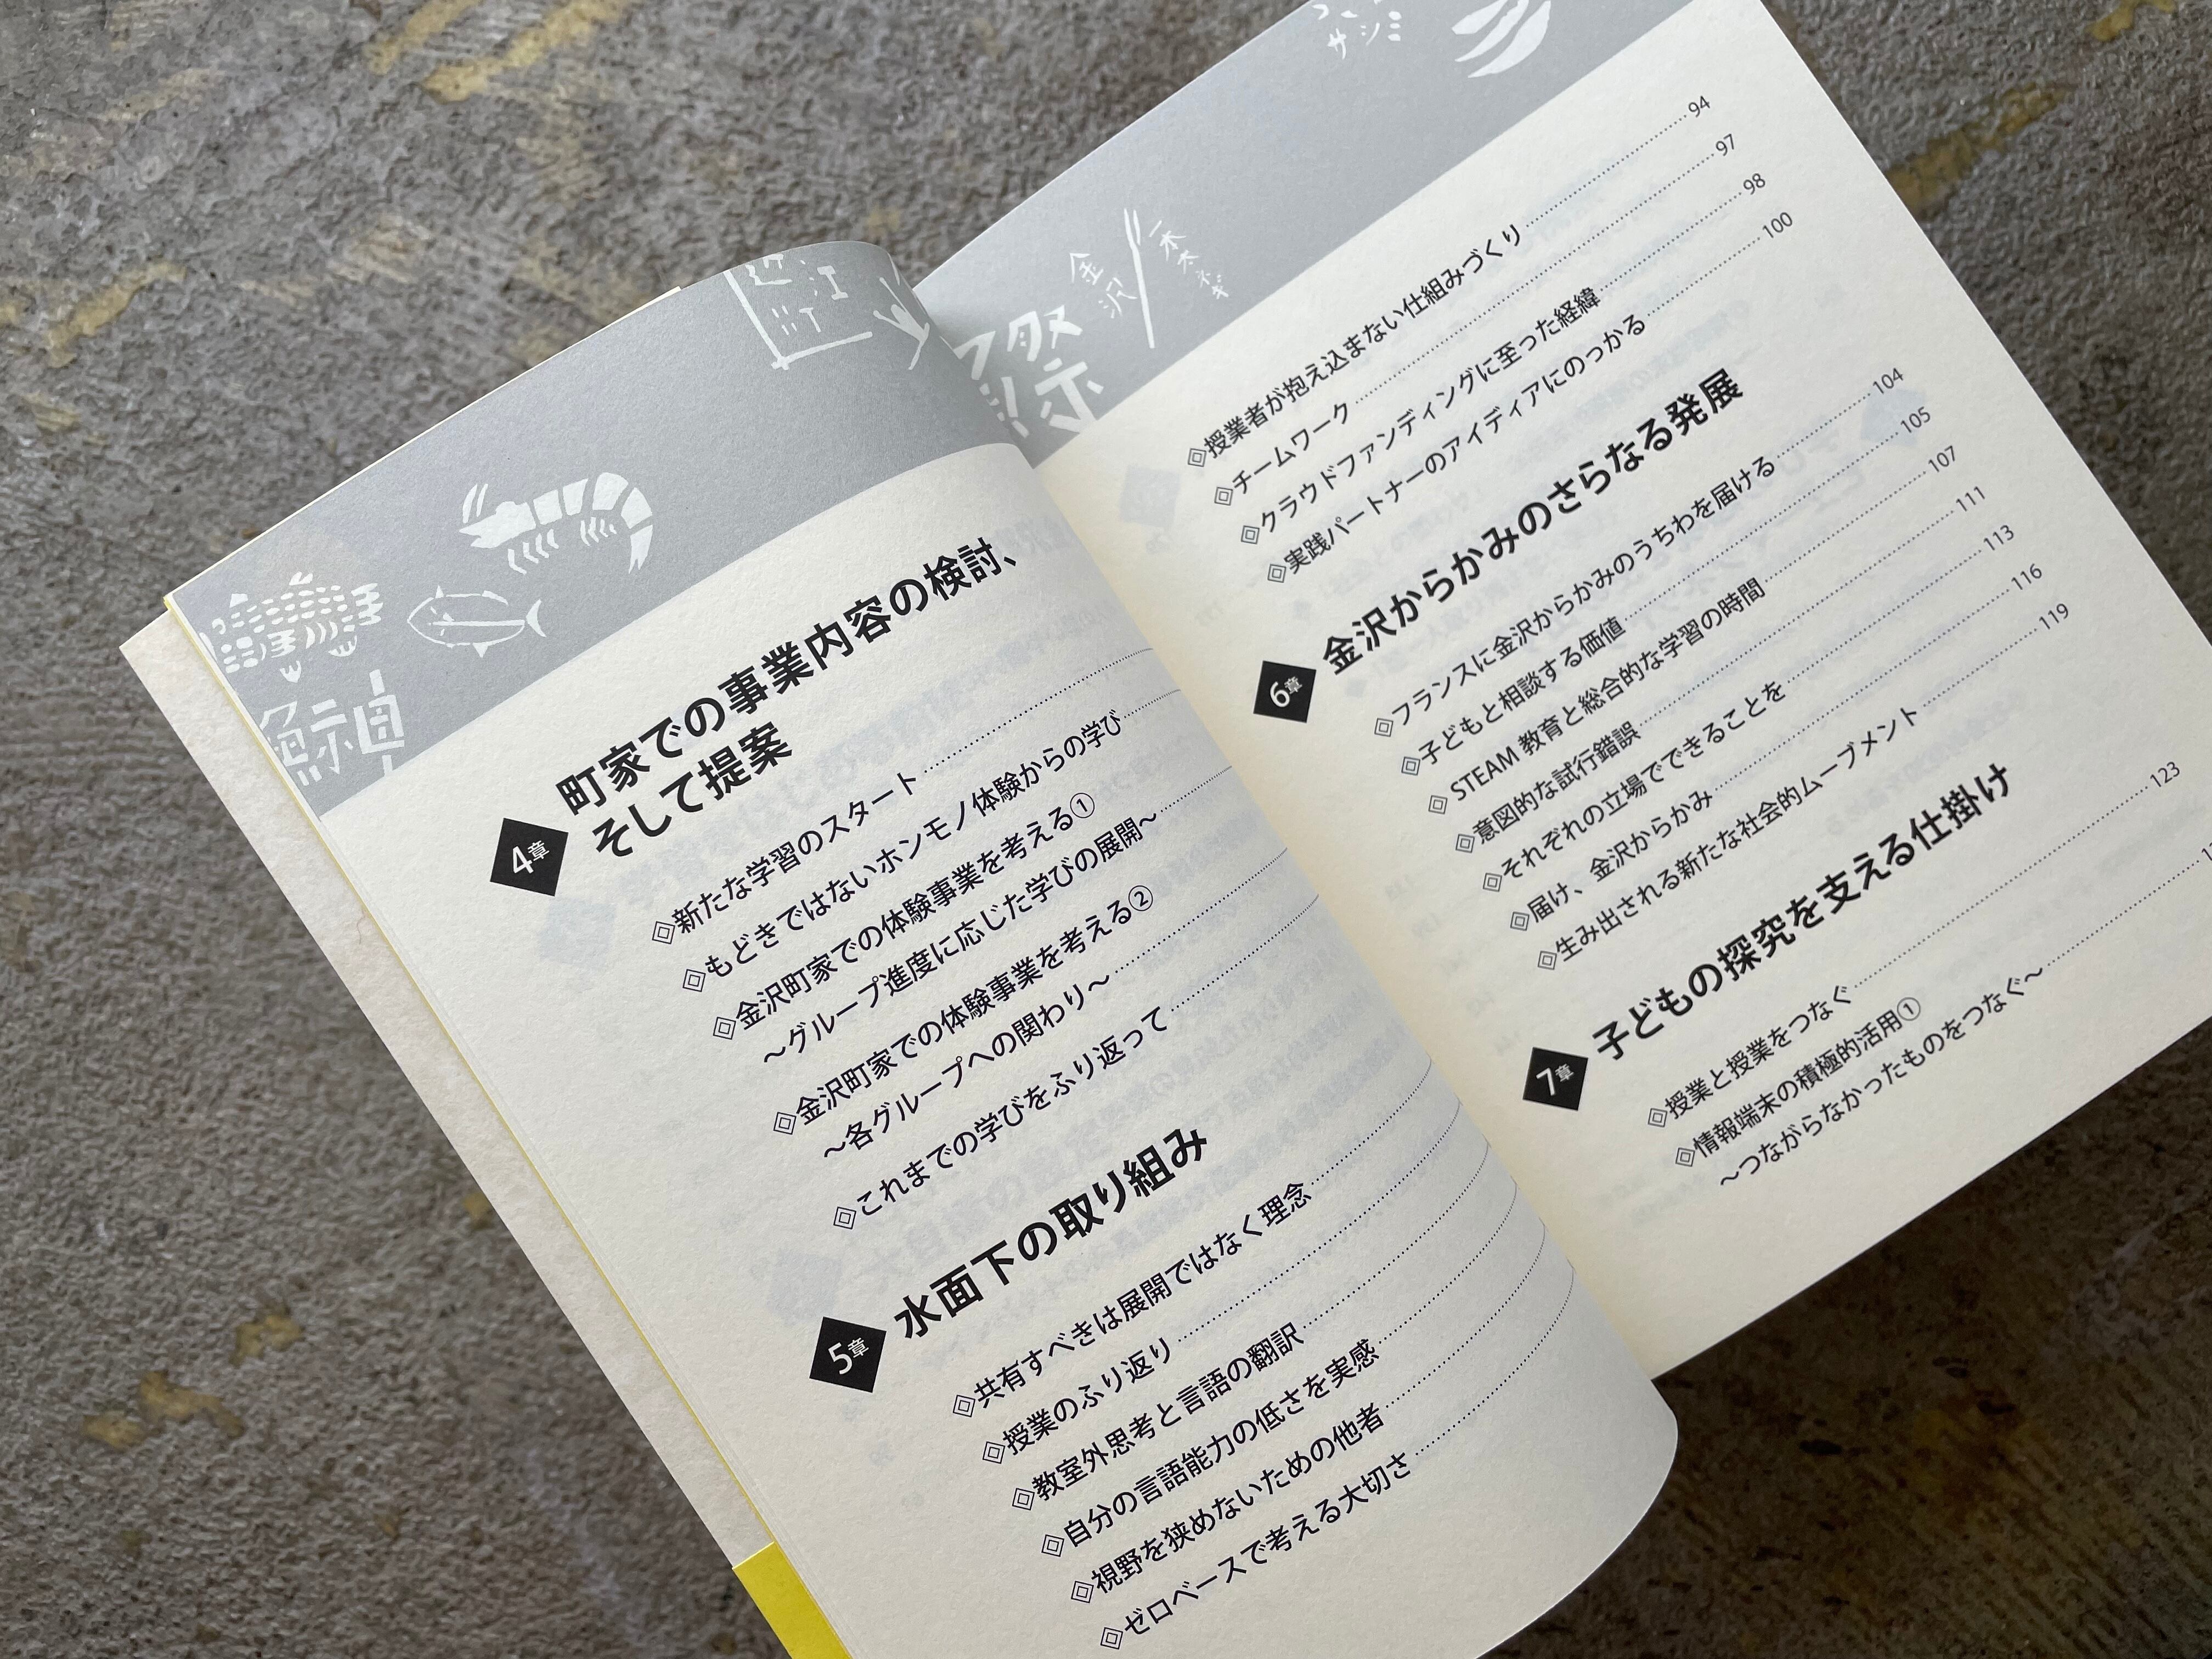 近江
町
鱈
4章
町家での事業内容の検討、
そして提案
◇新たな学習のスタート
◇もどきではないホンモノ体験からの学び
◇金沢町家での体験事業を考える①
～グループ進度に応じた学びの展開～
◇金沢町家での体験事業を考える②
～各グループへの関わり～
◇これまでの学びをふり返って
5章
水面下の取り組み
◇共有すべきは展開ではなく理念
◇授業のふり返り
◇教室外思考と言語の翻訳
◇自分の言語能力の低さを実感
◇視野を狭めないための他者
◇ゼロベースで考える大切さ
サシミ
金沢
一本太ネギ
◇授業者が抱え込まない仕組みづくり 94
◇チームワーク 97
◇クラウドファンディングに至った経緯 98
◇実践パートナーのアイディアにのっかる 100
6章
金沢からかみのさらなる発展
◇フランスに金沢からかみのうちわを届ける 104
◇子どもと相談する価値 105
◇STEAM 教育と総合的な学習の時間 107
◇意図的な試行錯誤 111
◇それぞれの立場でできることを 113
◇届け、金沢からかみ 116
◇生み出される新たな社会的ムーブメント 119
7章
子どもの探究を支える仕掛け
◇授業と授業をつなぐ 123
◇情報端末の積極的活用①
～つながらなかったものをつなぐ～